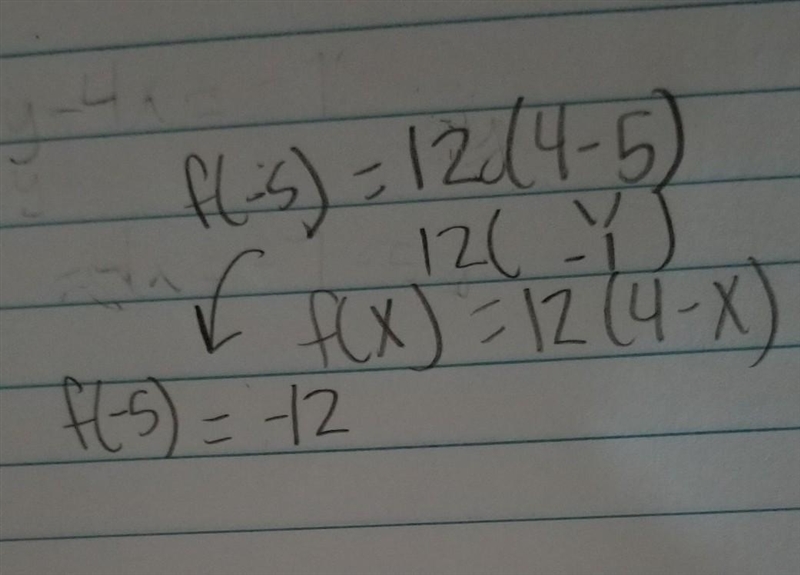 f(-5) = 12(4-5)
12(-1)
f(x) = 12(4-x)
f(-5) = -12